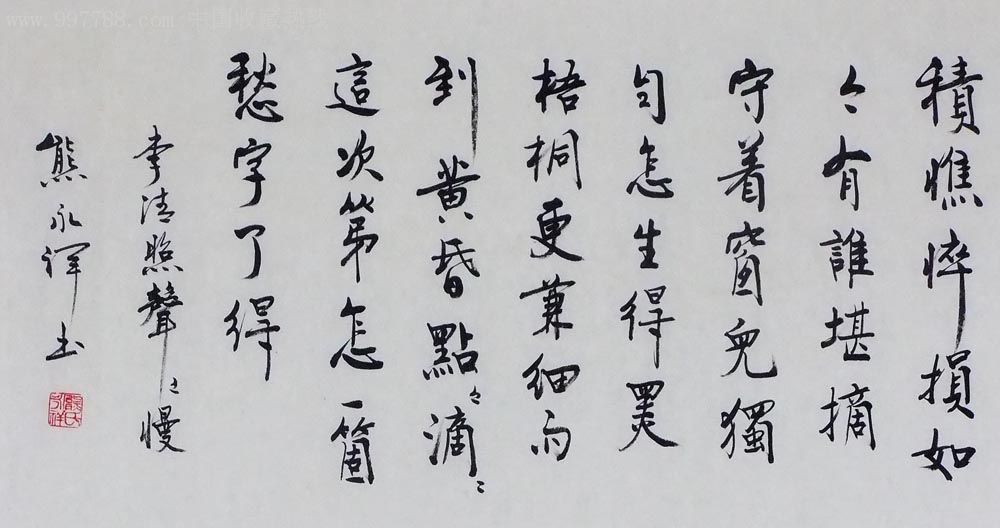 www.997788.com 中国收藏热线
積憔悴損如
今有誰堪摘
守着窗兒獨
自怎生得黑
梧桐更兼細雨
到黃昏點々滴々
這次第怎一箇
愁字了得
李清照聲々慢
熊永澤书